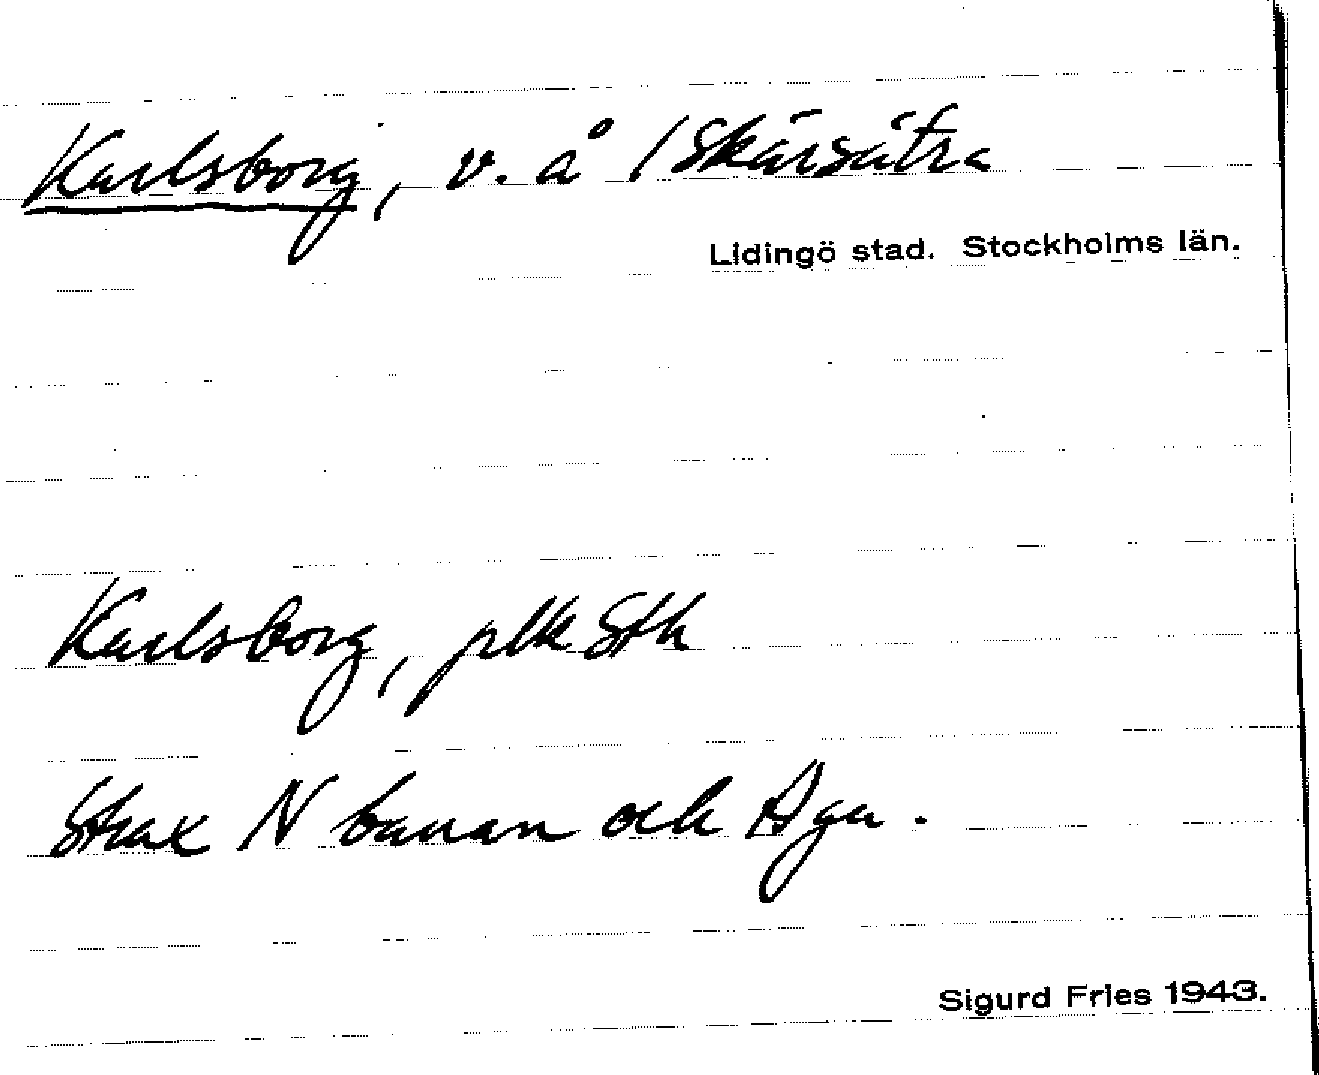 Karlsborg, v. å /Skärsätra
Lidingö stad. Stockholms län.
Karlsborg, plk Sth
Strax N banan och Aga.
Sigurd Fries 1943.